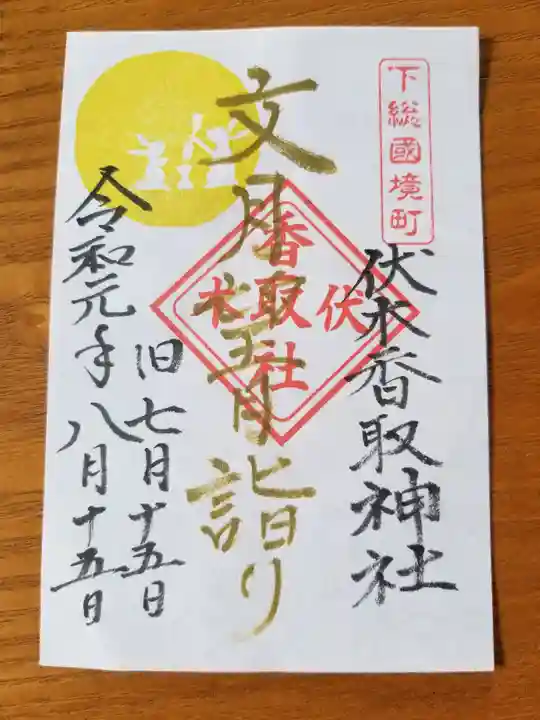 下総國境町
伏木香取神社
香取社
伏木
文月望月詣り
旧七月十五日
令和元年八月十五日